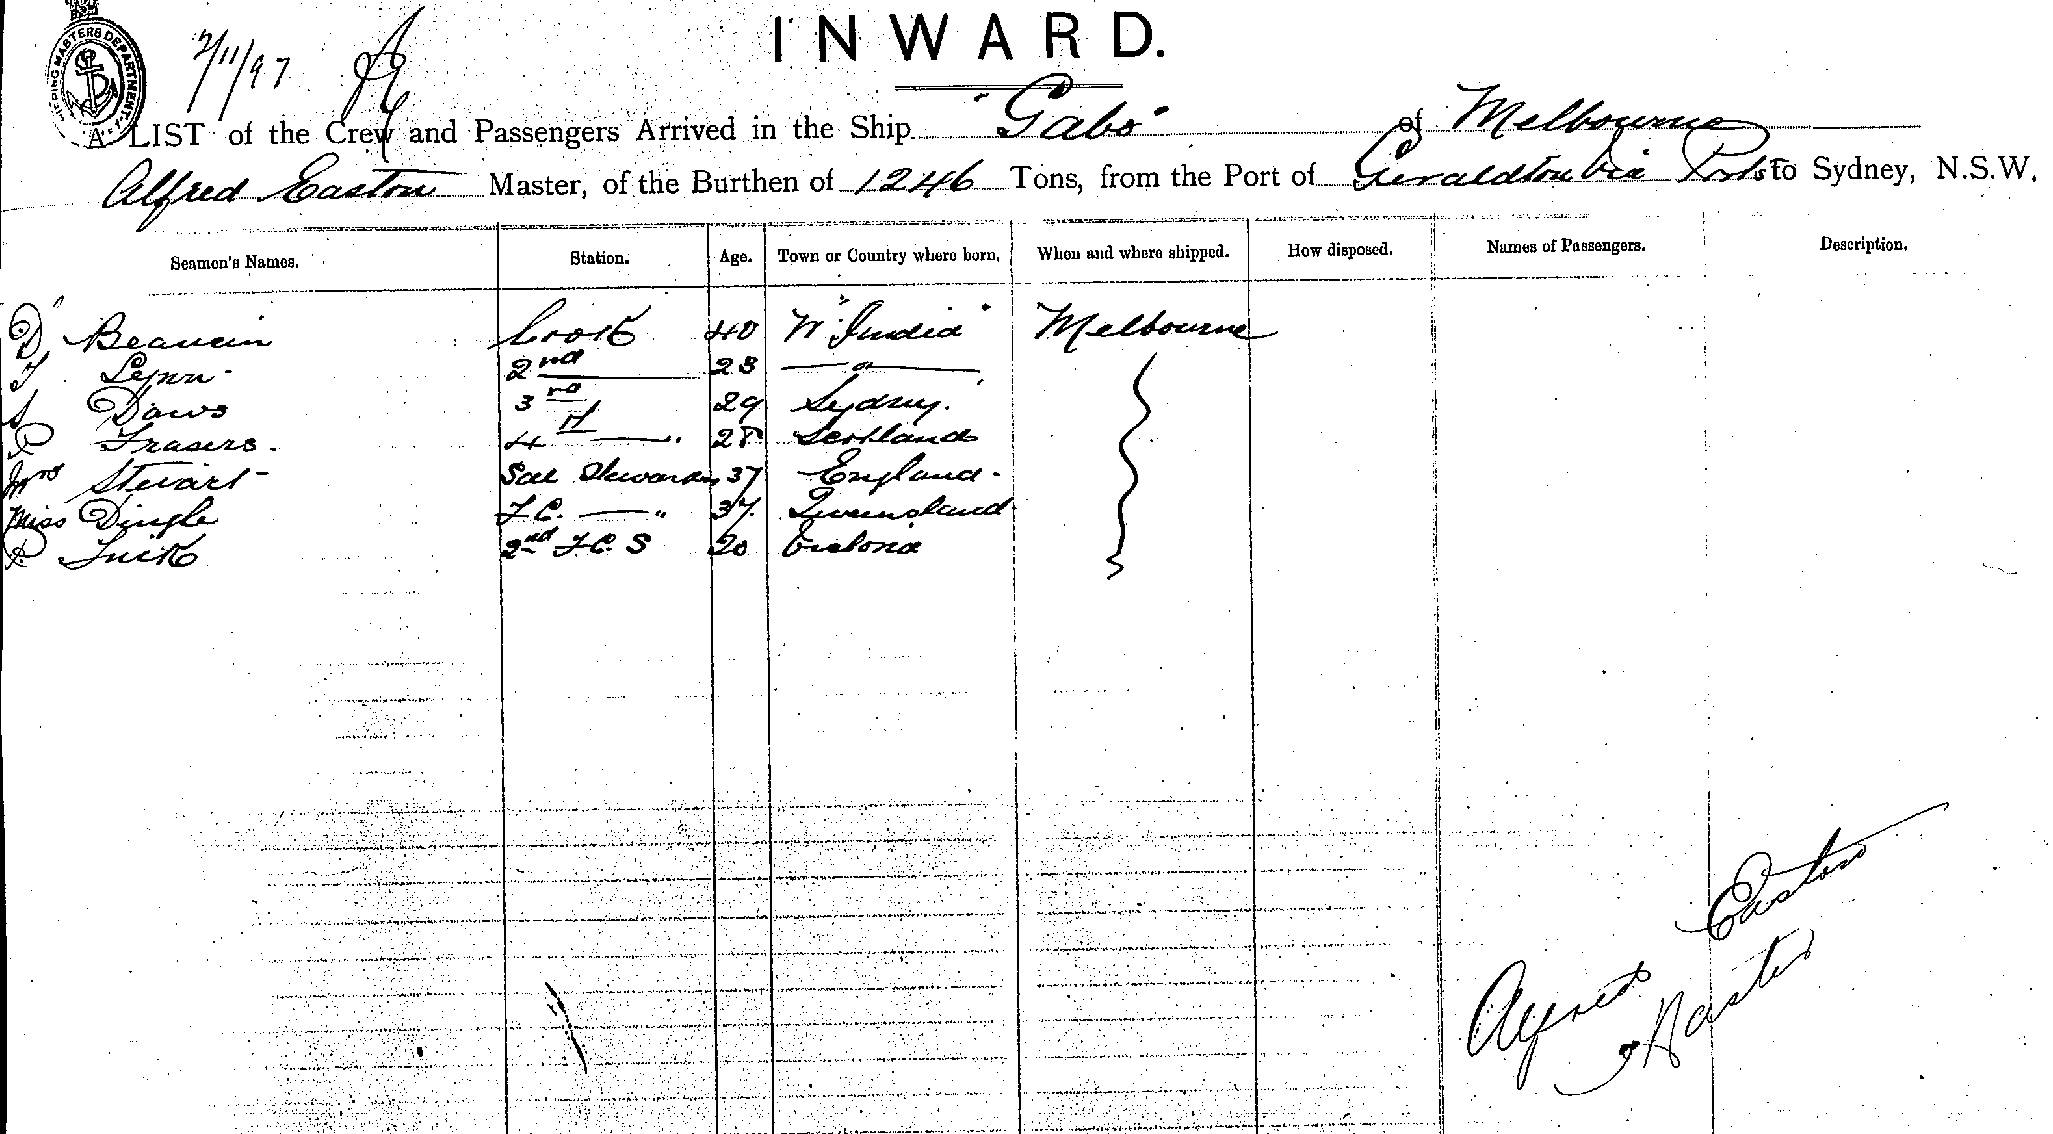 INWARD.
7/11/97
A LIST of the Crew and Passengers Arrived in the Ship "Gabo" of Melbourne
Alfred Easton Master, of the Burthen of 1246 Tons, from the Port of Geraldton Via Ports to Sydney, N.S.W.
Seamen's Names. Station. Age. Town or Country where born. When and where shipped. How disposed. Names of Passengers. Description.
D Beaucin Cook 40 W. India Melbourne
T Lynn 2nd 23 — " —
S Daws 3rd 29 Sydney.
P Frasers 4th — " 28 Scotland
Mrs Stewart Sal Stewardess 37 England
Miss Dingle F C. — " 37 Queensland
P 2nd F.C. S 20 Victoria
Alfred Easton
Master